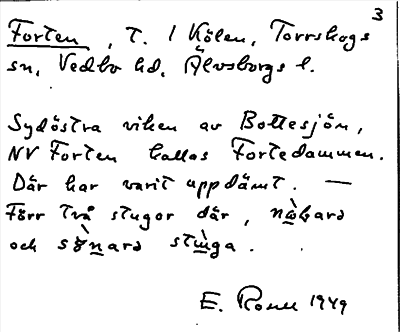 3
Forten, T. 1 Kölen, Torrskogs
sn, Vedbo hd, Älvsborgs l.
Sydöstra viken av Bottesjön,
NV Forten kallas Fortedammen.
Där har varit uppdämt. —
Förr två stugor där,
och stuga.
E. 1949